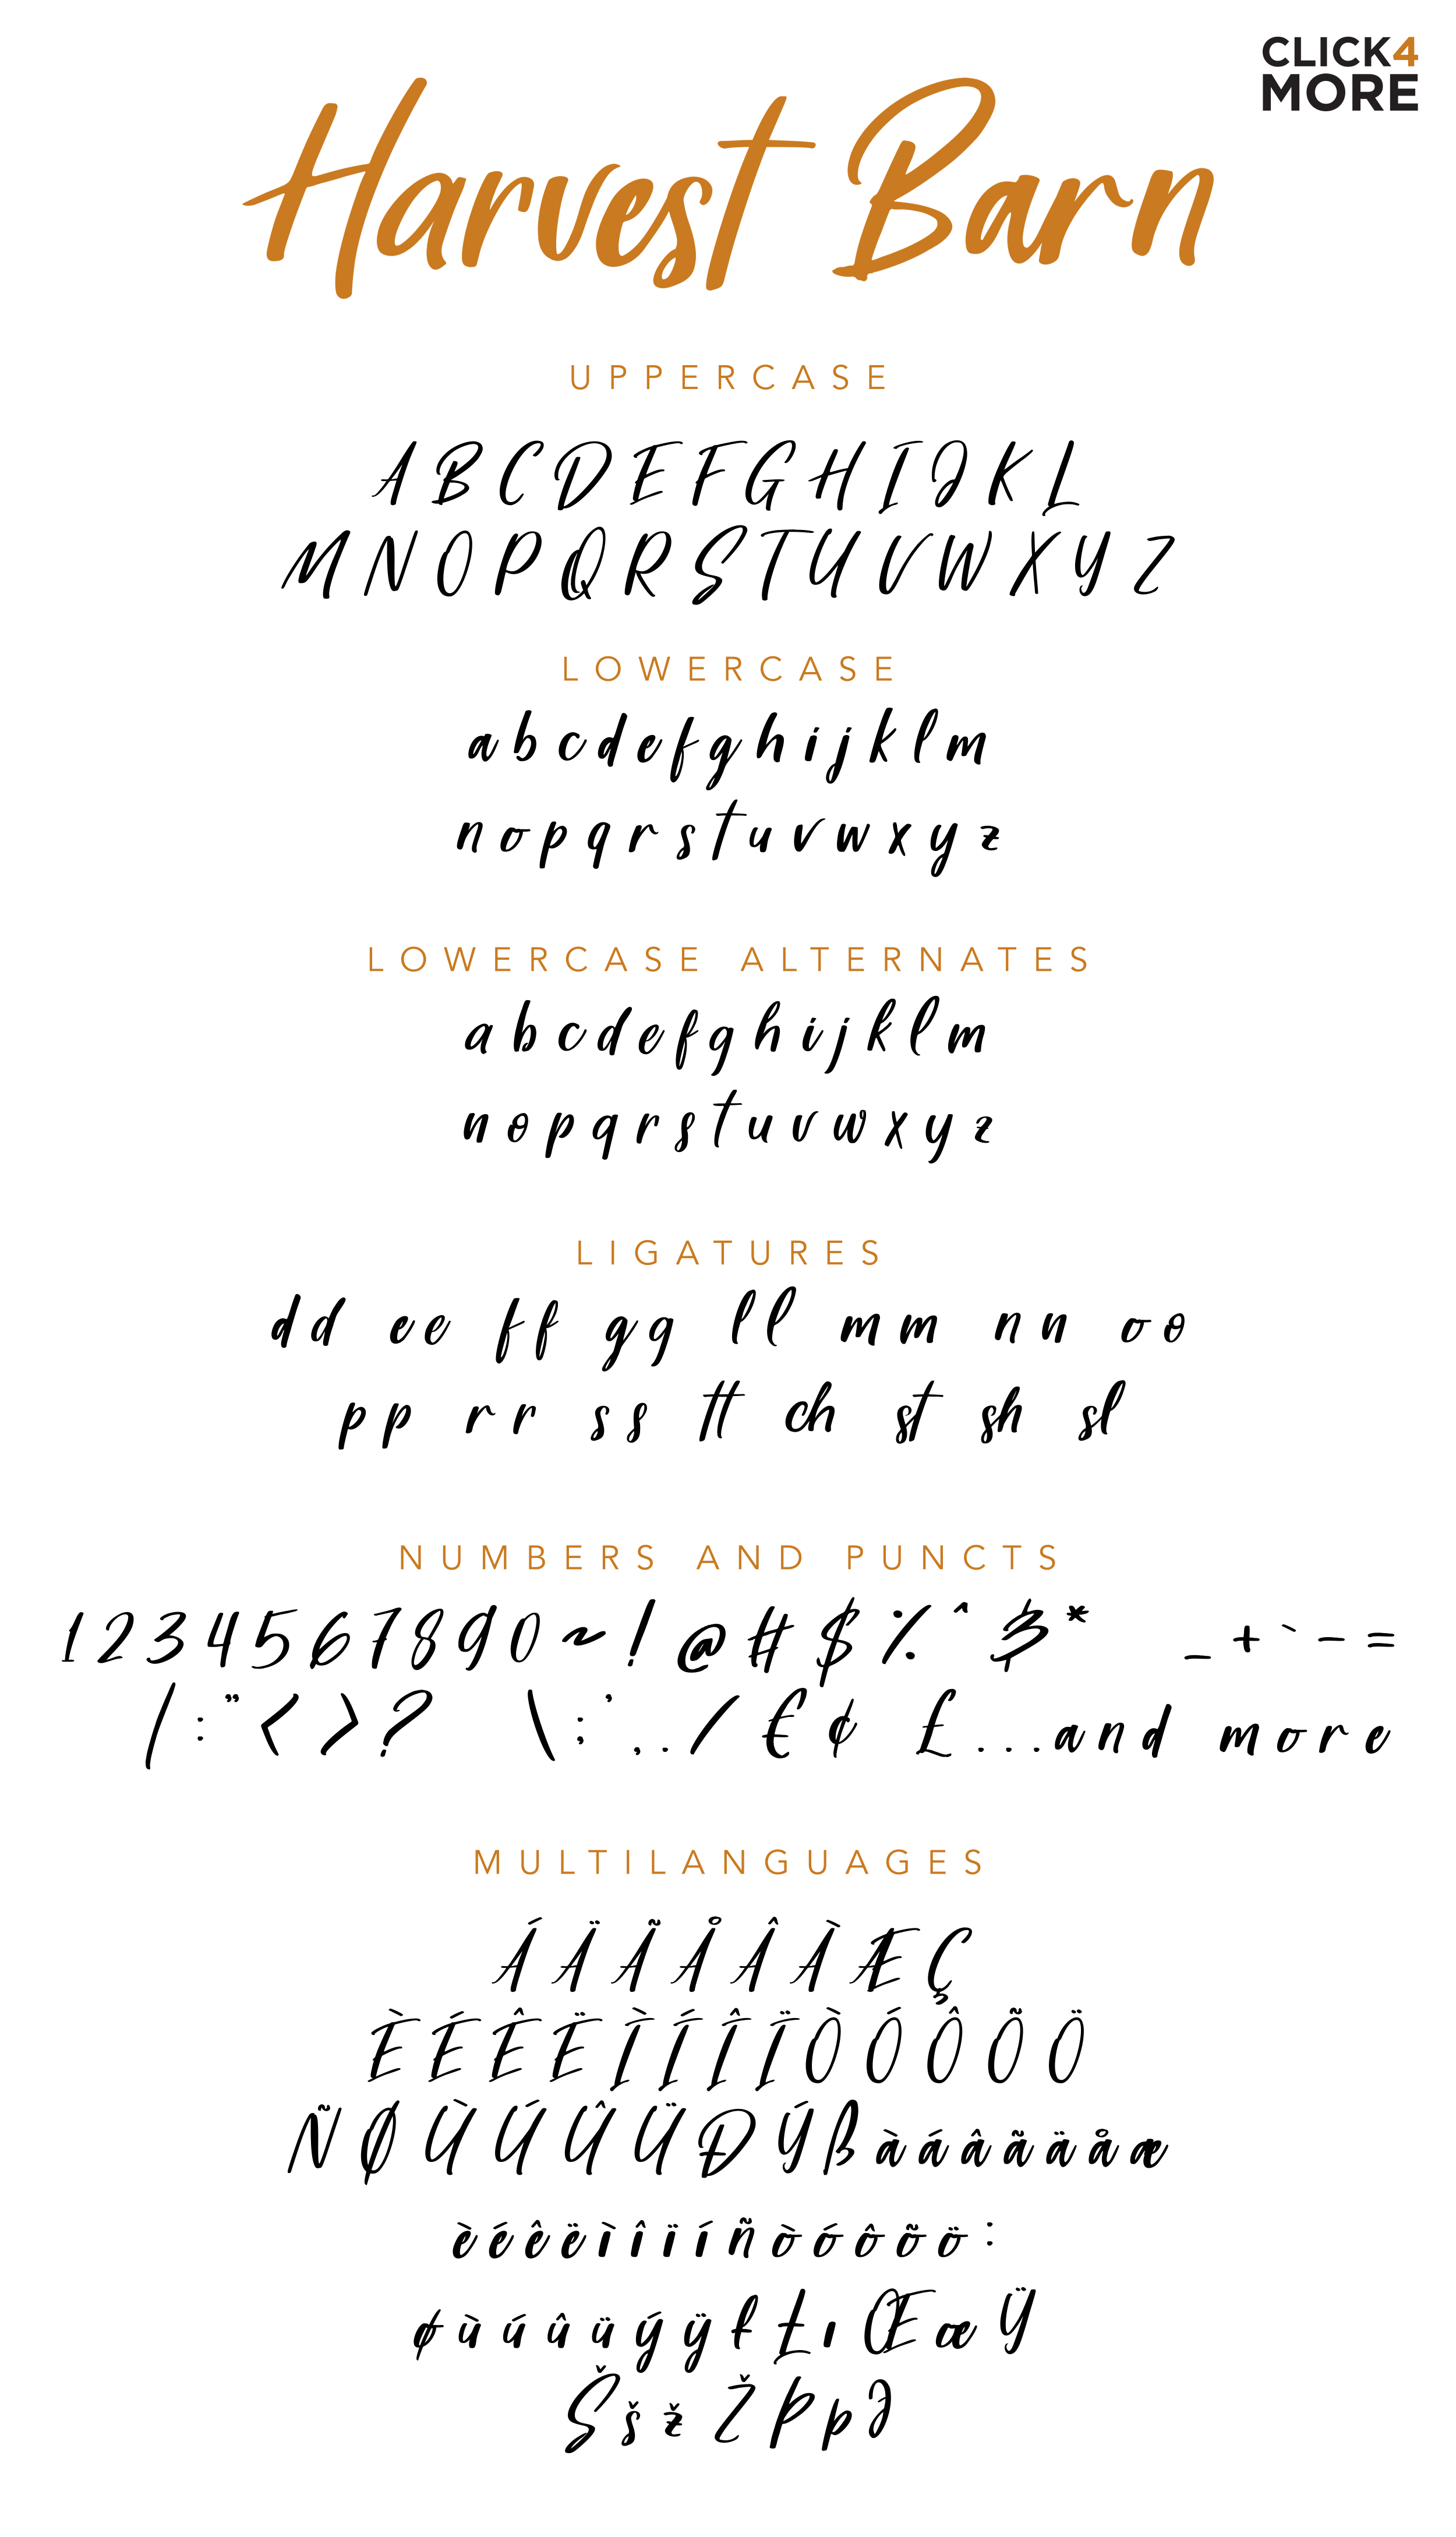 CLICK4
MORE
Harvest Barn
UPPERCASE
A B C D E F G H I J K L
M N O P Q R S T U V W X Y Z
LOWERCASE
a b c d e f g h i j k l m
n o p q r s t u v w x y z
LOWERCASE ALTERNATES
a b c d e f g h i j k l m
n o p q r s t u v w x y z
LIGATURES
dd ee ff gg ll mm nn oo
pp rr ss tt ch st sh sl
NUMBERS AND PUNCTS
1 2 3 4 5 6 7 8 9 0 ~ ! @ # $ % ^ & * _ + ` - =
( : " < > ? \ ; ' , . / € ¢ £ . . . and more
MULTILANGUAGES
Á Ä Ã Å Â À Æ Ç
È É Ê Ë Ì Í Î Ï Ò Ó Ô Õ Ö
Ñ Ø Ù Ú Û Ü Đ Ý ß à á â ã ä å æ
è é ê ë ì î ï í ñ ò ó ô õ ö :
ø ù ú û ü ý ÿ ł Ł ı Œ œ Ÿ
Š š ž Ž Þ þ